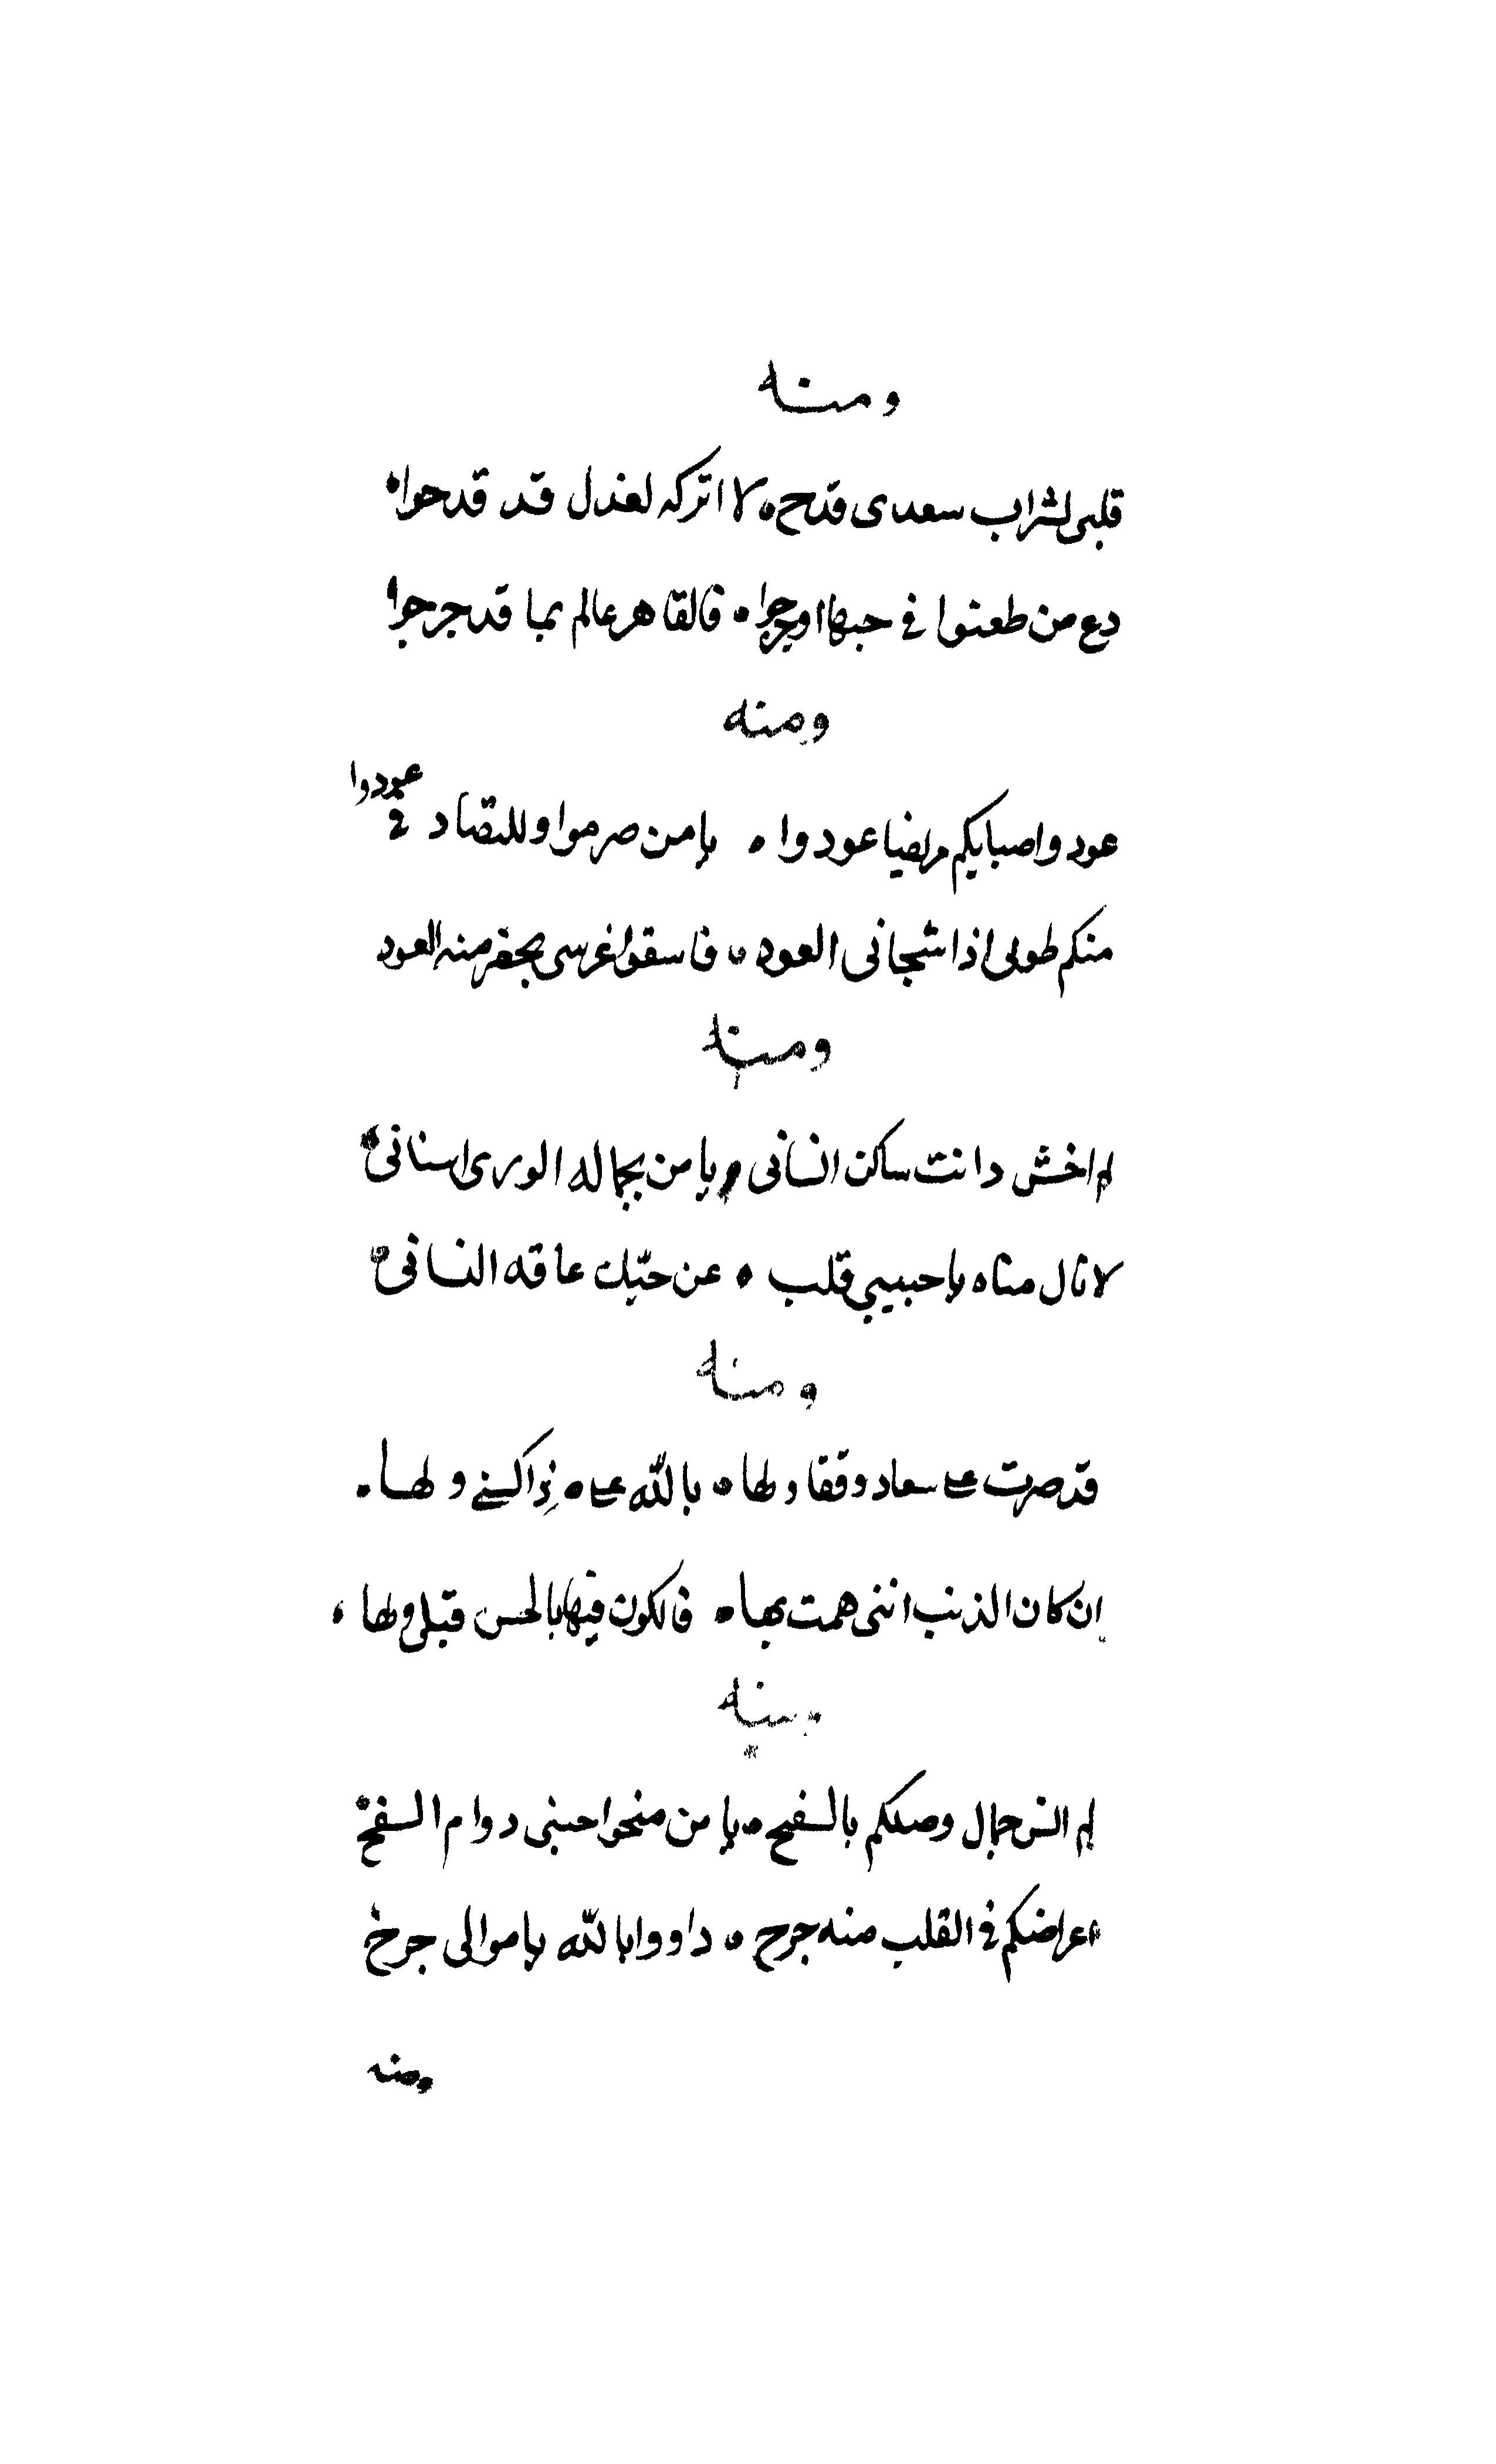 ومنه
قلبى لشراب سعدى قدح ه لا اتركه لعذل قد قدحوا ه
دع من طعنوا فى حبها او جرحوا ه فالقاهر عالم بما قد جرحوا
ومنه
عودوا صبايكم مرضيا عودوا ه يا من صرموا وللتضاد فى عودوا
منكم طوبى اذا شجانى العود ه فاسقوا غرسى يجف منه العود
ومنه
لم اخش دانت ساكن انسانى ه يا من بجماله الورى انسانى ه
لا نال مناه يا حبيبي قلب ه عن حبّك عاقه الفانى ه
ومنه
قد صرت على سعاد وقفا ولها ه بالله عساه ذاكنى ولها .
ان كان الذنب اننى همت بها ه فالكون فيها بالحسن قبلى ولها ه
ومنه
لم انس جمال وصلكم بالسفح ه يا من منحوا حبنى دوام السفح
اعراضكم فى القلب منه جرح ه داووا بالله يا موالى جرح
ومنه